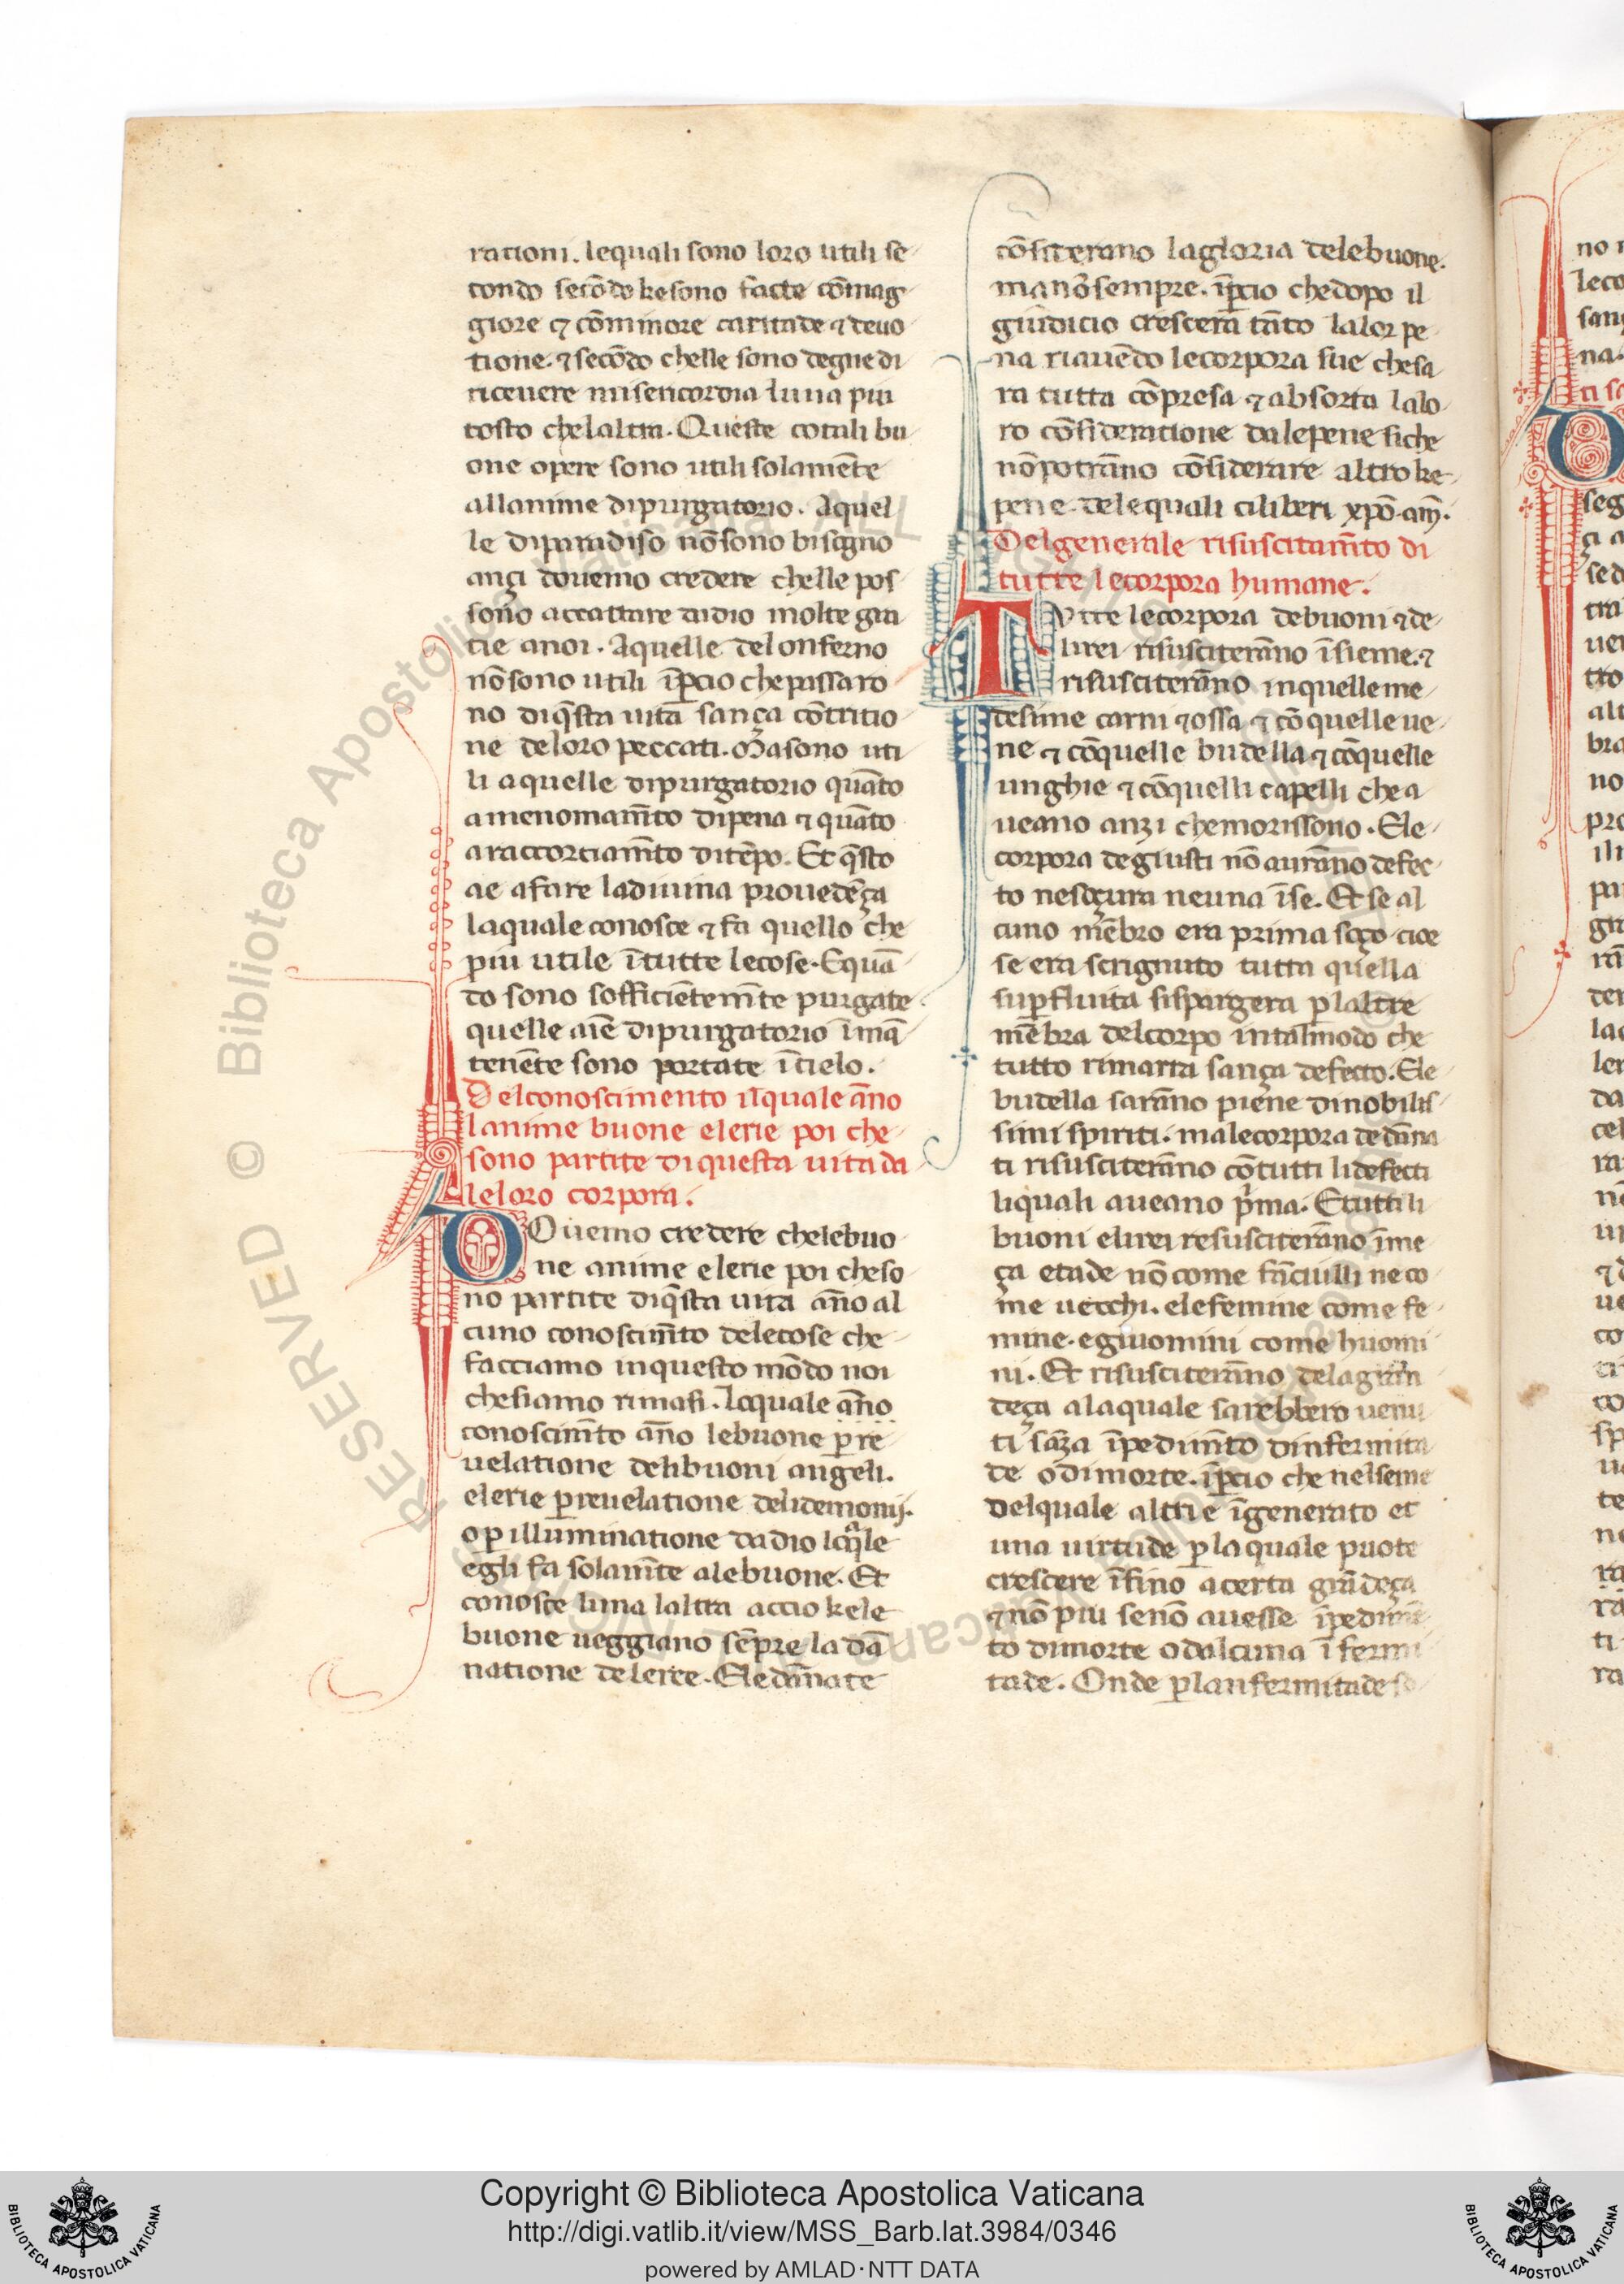 rationi. lequali sono loro utili se
condo secōdo ke sono facte cōmag
giore ⁊ cōminore caritade ⁊ deuo
tione. ⁊ secōdo chelle sono degne di
riceuere misericordia luna piu
tosto chelaltra. Queste cotali bu
one opere sono utili solamēte
allanime dipurgatorio. Aquel
le diparadiso nō sono bisogno
ançi douemo credere chelle pos
sono accattare dadio molte gra
tie anoi. Aquelle del onferno
nō sono utili īpcio che passaro
no diq̄sta uita sança cōtritio
ne deloro peccati. Ma sono uti
li aquelle dipurgatorio quāto
amenomam̄to dipena ⁊ quāto
araccorciam̄to ditēpo. Et q̄sto
ae afare ladiuina prouedēça
laquale conosce ⁊ fa quello che
piu utile ītutte lecose. Equā
do sono sofficiētem̄te purgate
quelle aīe dipurgatorio īmā
tenēte sono portate īcielo.
Delconoscimento ilquale āno
lanime buone elerie poi che
sono partite diquesta uita da
leloro corpora.
DOuemo credere chelebuo
ne anime elerie poi cheso
no partite diq̄sta uita āno al
cuno conoscim̄to delecose che
facciamo inquesto mōdo noi
chesiamo rimasi. Loquale āno
conoscim̄to āno lebuone p̱ re
uelatione delibuoni angeli.
elerie p̱reuelatione delidemonij.
o p̱ illuminatione dadio laq̄le
egli fa solam̄te alebuone. Et
conosce luna laltra accio kele
buone ueggiano sēpre la dā
natione deleree. Eledānate
cōsiderano lagloria delebuone.
ma nō sempre. īpcio chedopo il
giudicio crescera tāto lalor pe
na riauēdo lecorpora sue chesa
ra tutta cōpresa ⁊ absorta lalo
ro cōsideratione dalepene siche
nō potrāno cōsiderare altro ke
pene. delequali ciliberi xp̄o. am̄.
Delgenerale risuscitam̄to di
tutte lecorpora humane.
TVtte lecorpora debuoni ⁊ de
lirei risusciterāno īsieme. ⁊
risusciterāno inquelle me
desime carni ⁊ ossa ⁊ cō quelle ue
ne ⁊ cōquelle budella ⁊ cōquelle
unghie ⁊ cōquelli capelli che a
ueano anzi chemorissono. Ele
corpora degiusti nō aurāno defec
to nesoçura neuna īse. Et se al
cuno mēbro era prima soço cioe
se era scrignuto tutta quella
sup̱fluita sispargera p̱ laltre
mēbra delcorpo intalmodo che
tutto rimarra sança defecto. Ele
budella sarāno piene dinobilis
simi spiriti. malecorpora dedāna
ti risusciterāno cōtutti lidefecti
liquali aueano pʳma. Etutti li
buoni elirei resusciterāno īme
ça etade nō come fāciulli ne co
me uecchi. elefemine come fe
mine. egiuomini come huomi
ni. Et risusciterāno delagran
deça alaquale sarebbero uenu
ti sāza īpedim̄to dinfermita
de odimorte. īpcio che nelseme
delquale altri e īgenerato et
una uirtude p̱ laquale puote
crescere īfino acerta grādeça
⁊ nō piu senō auesse īpedimē
to dimorte odalcuna īfermi
tade. Onde p̱ lanfermitade
Copyright © Biblioteca Apostolica Vaticana
http://digi.vatlib.it/view/MSS_Barb.lat.3984/0346
powered by AMLAD·NTT DATA
BIBLIOTECA APOSTOLICA VATICANA
BIBLIOTECA APOSTOLICA VATICANA